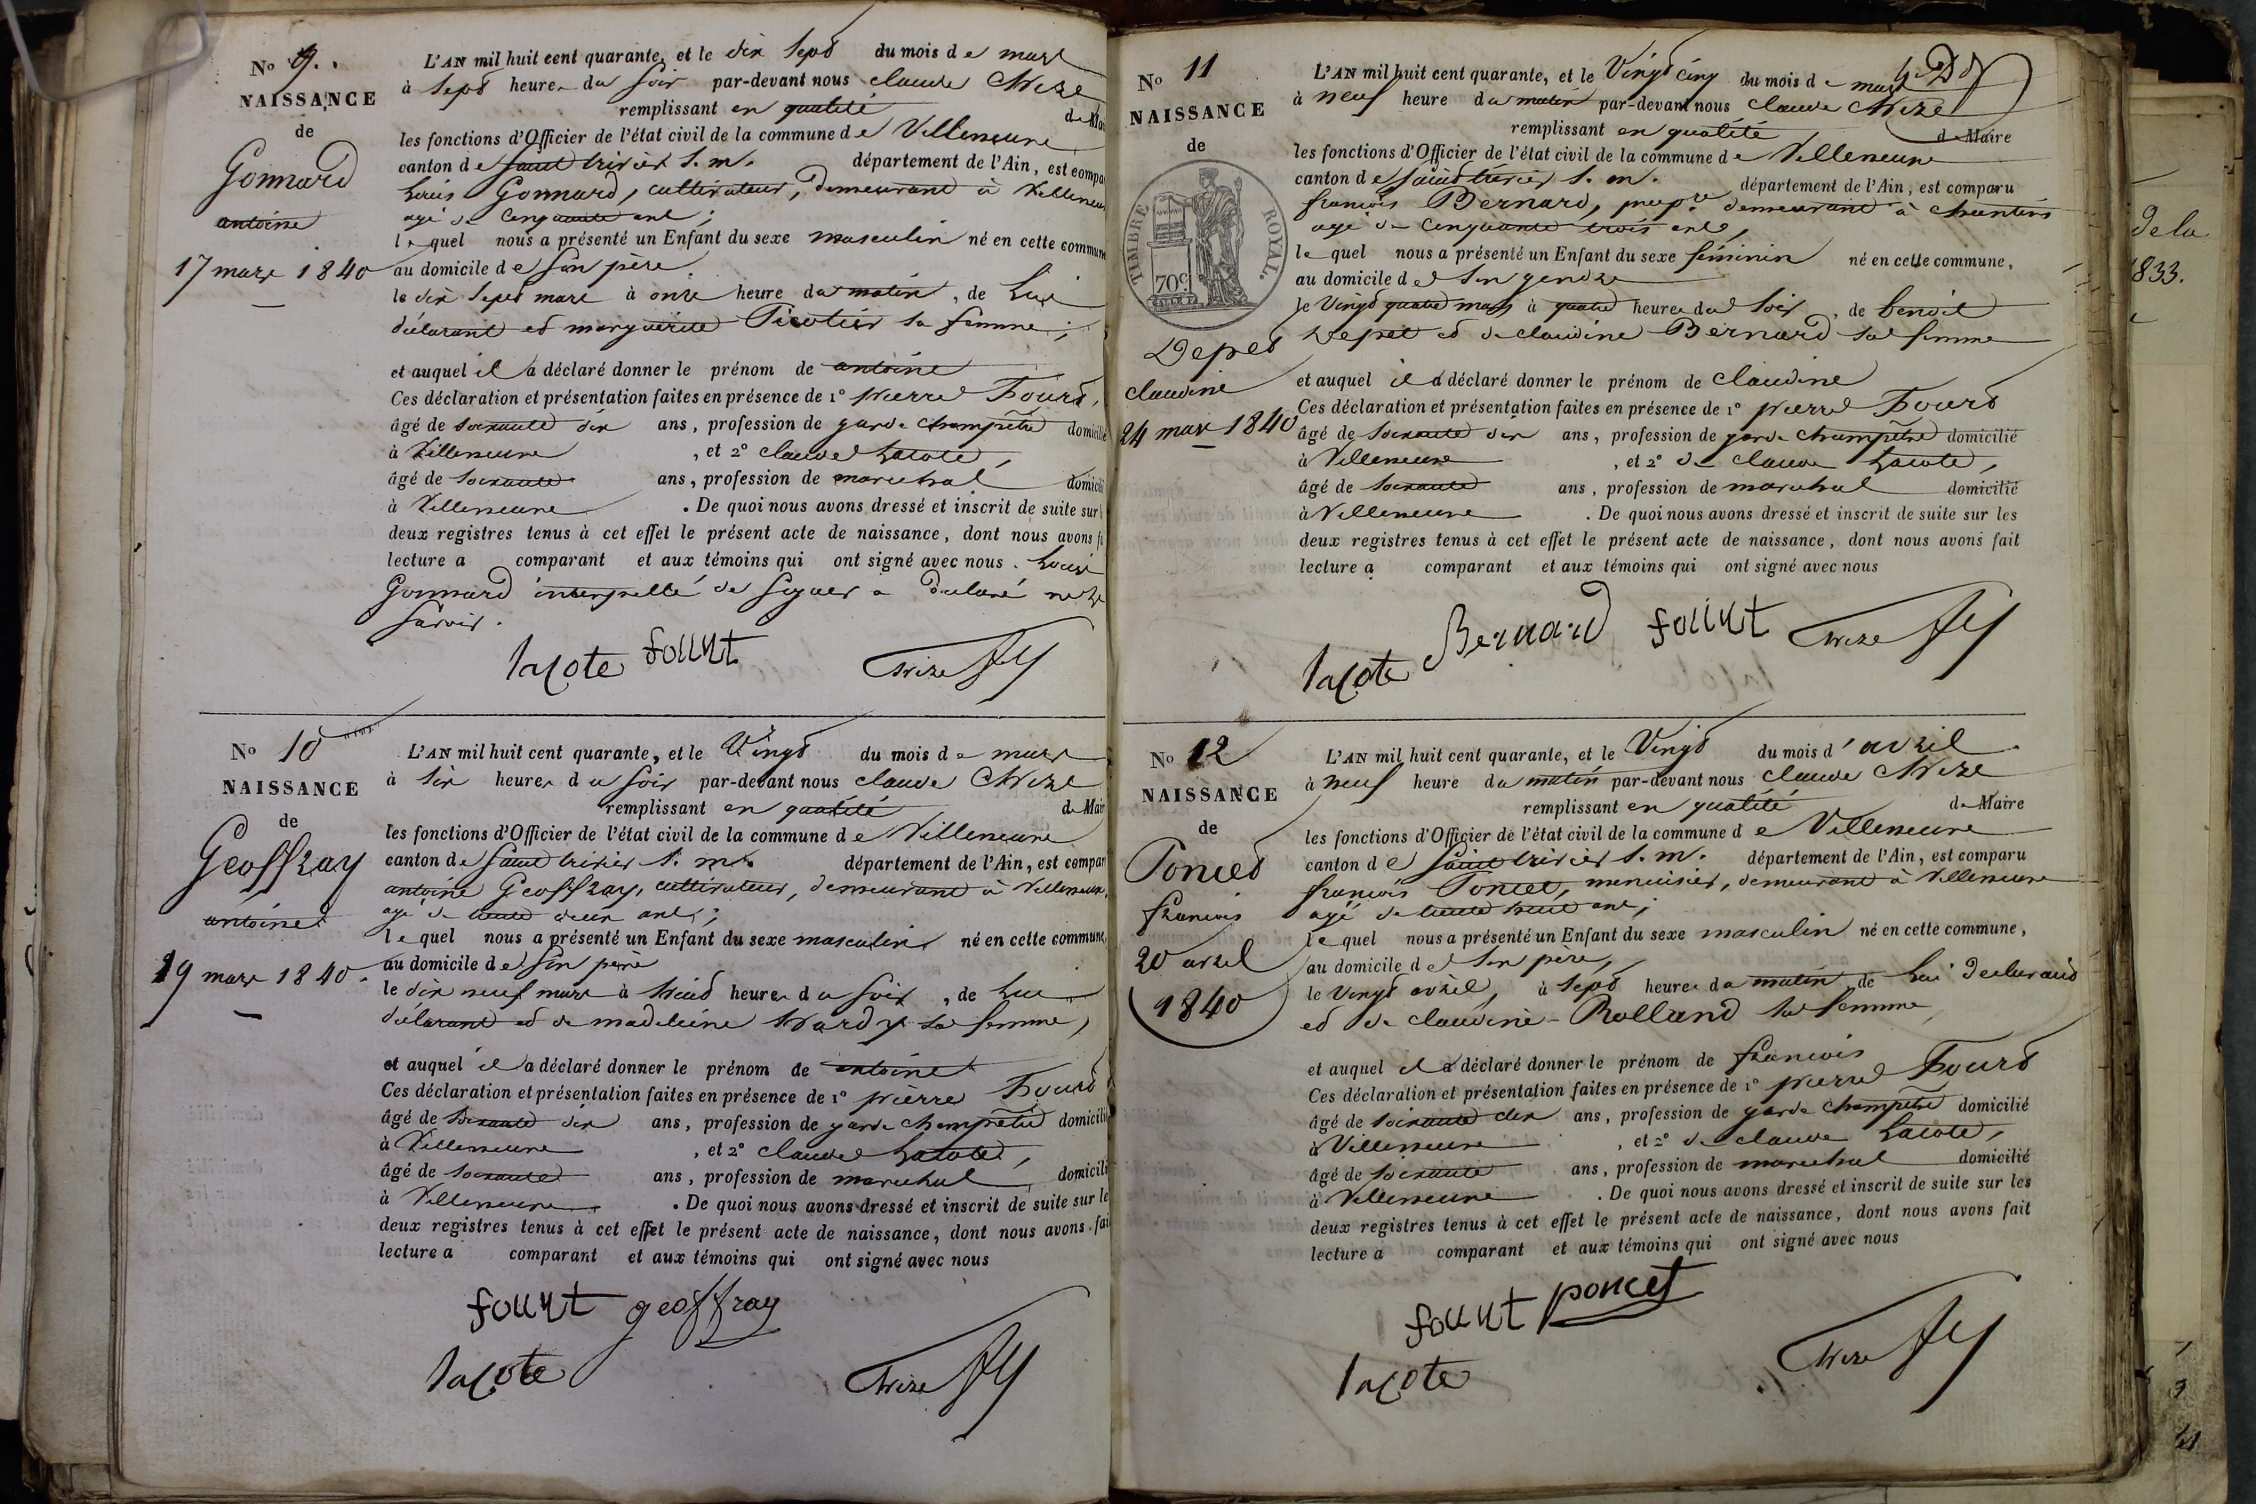 No 9.
NAISSANCE
de
Gonnard
antoine
17 mars 1840
L'AN mil huit cent quarante, et le dix sept du mois de mars
à sept heures du soir par-devant nous claude
remplissant en qualité de Mai
les fonctions d'Officier de l'état civil de la commune de Villeneuve
canton de saint trivier s. m. département de l'Ain, est compa
Louis Gonnard, cultivateur, demeurant à Villeneuve
agé de cinquante ans;
lequel nous a présenté un Enfant du sexe masculin né en cette commune
au domicile de son père
le dix sept mars à onze heure du matin, de lui
déclarant et marguerite sa femme;
et auquel il a déclaré donner le prénom de antoine
Ces déclaration et présentation faites en présence de 1° pierre
âgé de soixante dix ans, profession de garde champêtre domicilié
à Villeneuve, et 2° claude Lacote,
âgé de soixante ans, profession de marechal domicili
à Villeneuve. De quoi nous avons dressé et inscrit de suite sur
deux registres tenus à cet effet le présent acte de naissance, dont nous avons f
lecture a comparant et aux témoins qui ont signé avec nous. Louis
Gonnard interpellé de signer a déclaré ne le
savoir.
lacote
No 10
NAISSANCE
de
Geoffray
antoine
19 mars 1840.
L'AN mil huit cent quarante, et le Vingt du mois de mars
à six heures du soir par-devant nous claude
remplissant en qualité de Mair
les fonctions d'Officier de l'état civil de la commune de Villeneuve
canton de saint trivier s. m. département de l'Ain, est compar
antoine Geoffray, cultivateur, demeurant à Villeneuve,
agé de trente deux ans;
lequel nous a présenté un Enfant du sexe masculin né en cette commune,
au domicile de son père
le dix neuf mars à huit heures du soir, de lui
déclarant et de madeleine sa femme,
et auquel il a déclaré donner le prénom de antoine
Ces déclaration et présentation faites en présence de 1° pierre
âgé de soixante dix ans, profession de garde champêtre domicilié
à Villeneuve, et 2° claude Lacote,
âgé de soixante ans, profession de marechal domicili
à Villeneuve. De quoi nous avons dressé et inscrit de suite sur le
deux registres tenus à cet effet le présent acte de naissance, dont nous avons fai
lecture a comparant et aux témoins qui ont signé avec nous
geoffray
lacote
No 11
NAISSANCE
de
TIMBRE ROYAL.
70c
Depret
claudine
24 mars 1840
L'AN mil huit cent quarante, et le Vingt cinq du mois de mars
à neuf heure du matin par-devant nous claude
remplissant en qualité de Maire
les fonctions d'Officier de l'état civil de la commune de Villeneuve
canton de saint trivier s. m. département de l'Ain, est comparu
francois Bernard, demeurant à
agé de cinquante trois ans,
lequel nous a présenté un Enfant du sexe féminin né en cette commune,
au domicile de son gendre
le Vingt quatre mars à quatre heures du soir, de benoit
Depret et de claudine Bernard sa femme
et auquel il a déclaré donner le prénom de claudine
Ces déclaration et présentation faites en présence de 1° pierre
âgé de soixante dix ans, profession de garde champêtre domicilié
à Villeneuve, et 2° de claude Lacote,
âgé de soixante ans, profession de marechal domicilié
à Villeneuve. De quoi nous avons dressé et inscrit de suite sur les
deux registres tenus à cet effet le présent acte de naissance, dont nous avons fait
lecture a comparant et aux témoins qui ont signé avec nous
Bernard
lacote
No 12
NAISSANCE
de
Poncet
francois
20 avril
1840
L'AN mil huit cent quarante, et le Vingt du mois d'avril
à neuf heure du matin par-devant nous claude
remplissant en qualité de Maire
les fonctions d'Officier de l'état civil de la commune de Villeneuve
canton de saint trivier s. m. département de l'Ain, est comparu
francois Poncet, menuisier, demeurant à Villeneuve
agé de trente huit ans;
lequel nous a présenté un Enfant du sexe masculin né en cette commune,
au domicile de son père,
le Vingt avril, à sept heures du matin de lui declarant
et de claudine Rolland sa femme,
et auquel il a déclaré donner le prénom de francois
Ces déclaration et présentation faites en présence de 1° pierre
âgé de soixante dix ans, profession de garde champêtre domicilié
à Villeneuve, et 2° de claude Lacote,
âgé de soixante ans, profession de marechal domicilié
à Villeneuve. De quoi nous avons dressé et inscrit de suite sur les
deux registres tenus à cet effet le présent acte de naissance, dont nous avons fait
lecture a comparant et aux témoins qui ont signé avec nous
poncet
lacote
de la
1833.